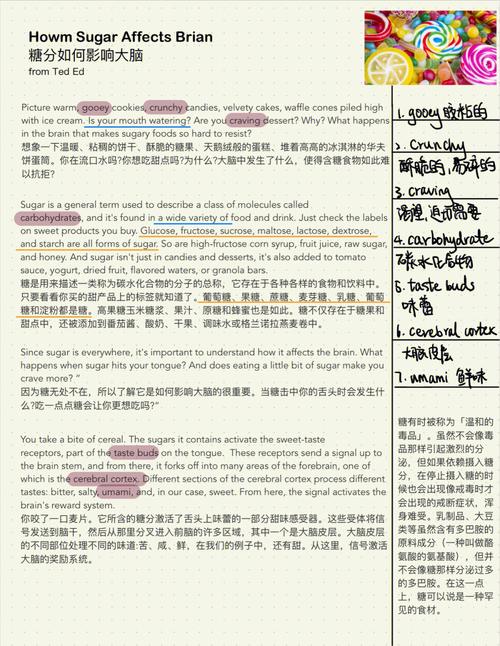 Howm Sugar Affects Brian
糖分如何影响大脑
from Ted Ed
Picture warm, gooey cookies, crunchy candies, velvety cakes, waffle cones piled high
with ice cream. Is your mouth watering? Are you craving dessert? Why? What happens
in the brain that makes sugary foods so hard to resist?
想象一下温暖、粘稠的饼干、酥脆的糖果、天鹅绒般的蛋糕、堆着高高的冰淇淋的华夫
饼蛋筒。你在流口水吗?你想吃甜点吗?为什么?大脑中发生了什么，使得含糖食物如此难
以抗拒?
Sugar is a general term used to describe a class of molecules called
carbohydrates, and it's found in a wide variety of food and drink. Just check the labels
on sweet products you buy. Glucose, fructose, sucrose, maltose, lactose, dextrose,
and starche are all forms of sugar. So are high-fructose corn syrup, fruit juice, raw sugar,
and honey. And sugar isn't just in candies and desserts, it's also added to tomato
sauce, yogurt, dried fruit, flavored waters, or granola bars.
糖是用来描述一类称为碳水化合物的分子的总称，它存在于各种各样的食物和饮料中。
只要看看你买的甜产品上的标签就知道了。葡萄糖、果糖、蔗糖、麦芽糖、乳糖、葡萄
糖和淀粉都是糖。高果糖玉米糖浆、果汁、原糖和蜂蜜也是如此。糖不仅存在于糖果和
甜点中，还被添加到番茄酱、酸奶、干果、调味水或格兰诺拉燕麦卷中。
Since sugar is everywhere, it's important to understand how it affects the brain. What
happens when sugar hits your tongue? And does eating a little bit of sugar make you
crave more? "
因为糖无处不在，所以了解它是如何影响大脑的很重要。当糖击中你的舌头时会发生什
么?吃一点点糖会让你更想吃吗?"
You take a bite of cereal. The sugars it contains activate the sweet-taste
receptors, part of the taste buds on the tongue. These receptors send a signal up to
the brain stem, and from there, it forks off into many areas of the forebrain, one of
which is the cerebral cortex. Different sections of the cerebral cortex process different
tastes: bitter, salty, umami, and, in our case, sweet. From here, the signal activates the
brain's reward system.
你咬了一口麦片。它所含的糖分激活了舌头上味蕾的一部分甜味感受器。这些受体将信
号发送到脑干，然后从那里分叉进入前脑的许多区域，其中一个是大脑皮层。大脑皮层
的不同部位处理不同的味道:苦、咸、鲜，在我们的例子中，还有甜。从这里，信号激活
大脑的奖励系统。
1. gooey 胶粘的
2. Crunchy
酥脆的, 易碎的
3. craving
渴望, 迫切需要
4. carbohydrate
碳水化合物
5. taste buds
味蕾
6. cerebral cortex
大脑皮层
7. umami 鲜味
糖有时被称为「温和的
毒品」。虽然不会像毒
品那样引起激烈的分
泌，但如果依赖摄入糖
分，在停止摄入糖的时
候也会出现像戒毒时才
会出现的戒断症状，浑
身难受。乳制品、大豆
类等虽然含有多巴胺的
原料成分（一种叫做酪
氨酸的氨基酸），但并
不会像糖那样分泌过多
的多巴胺。在这一点
上，糖可以说是一种罕
见的食材。